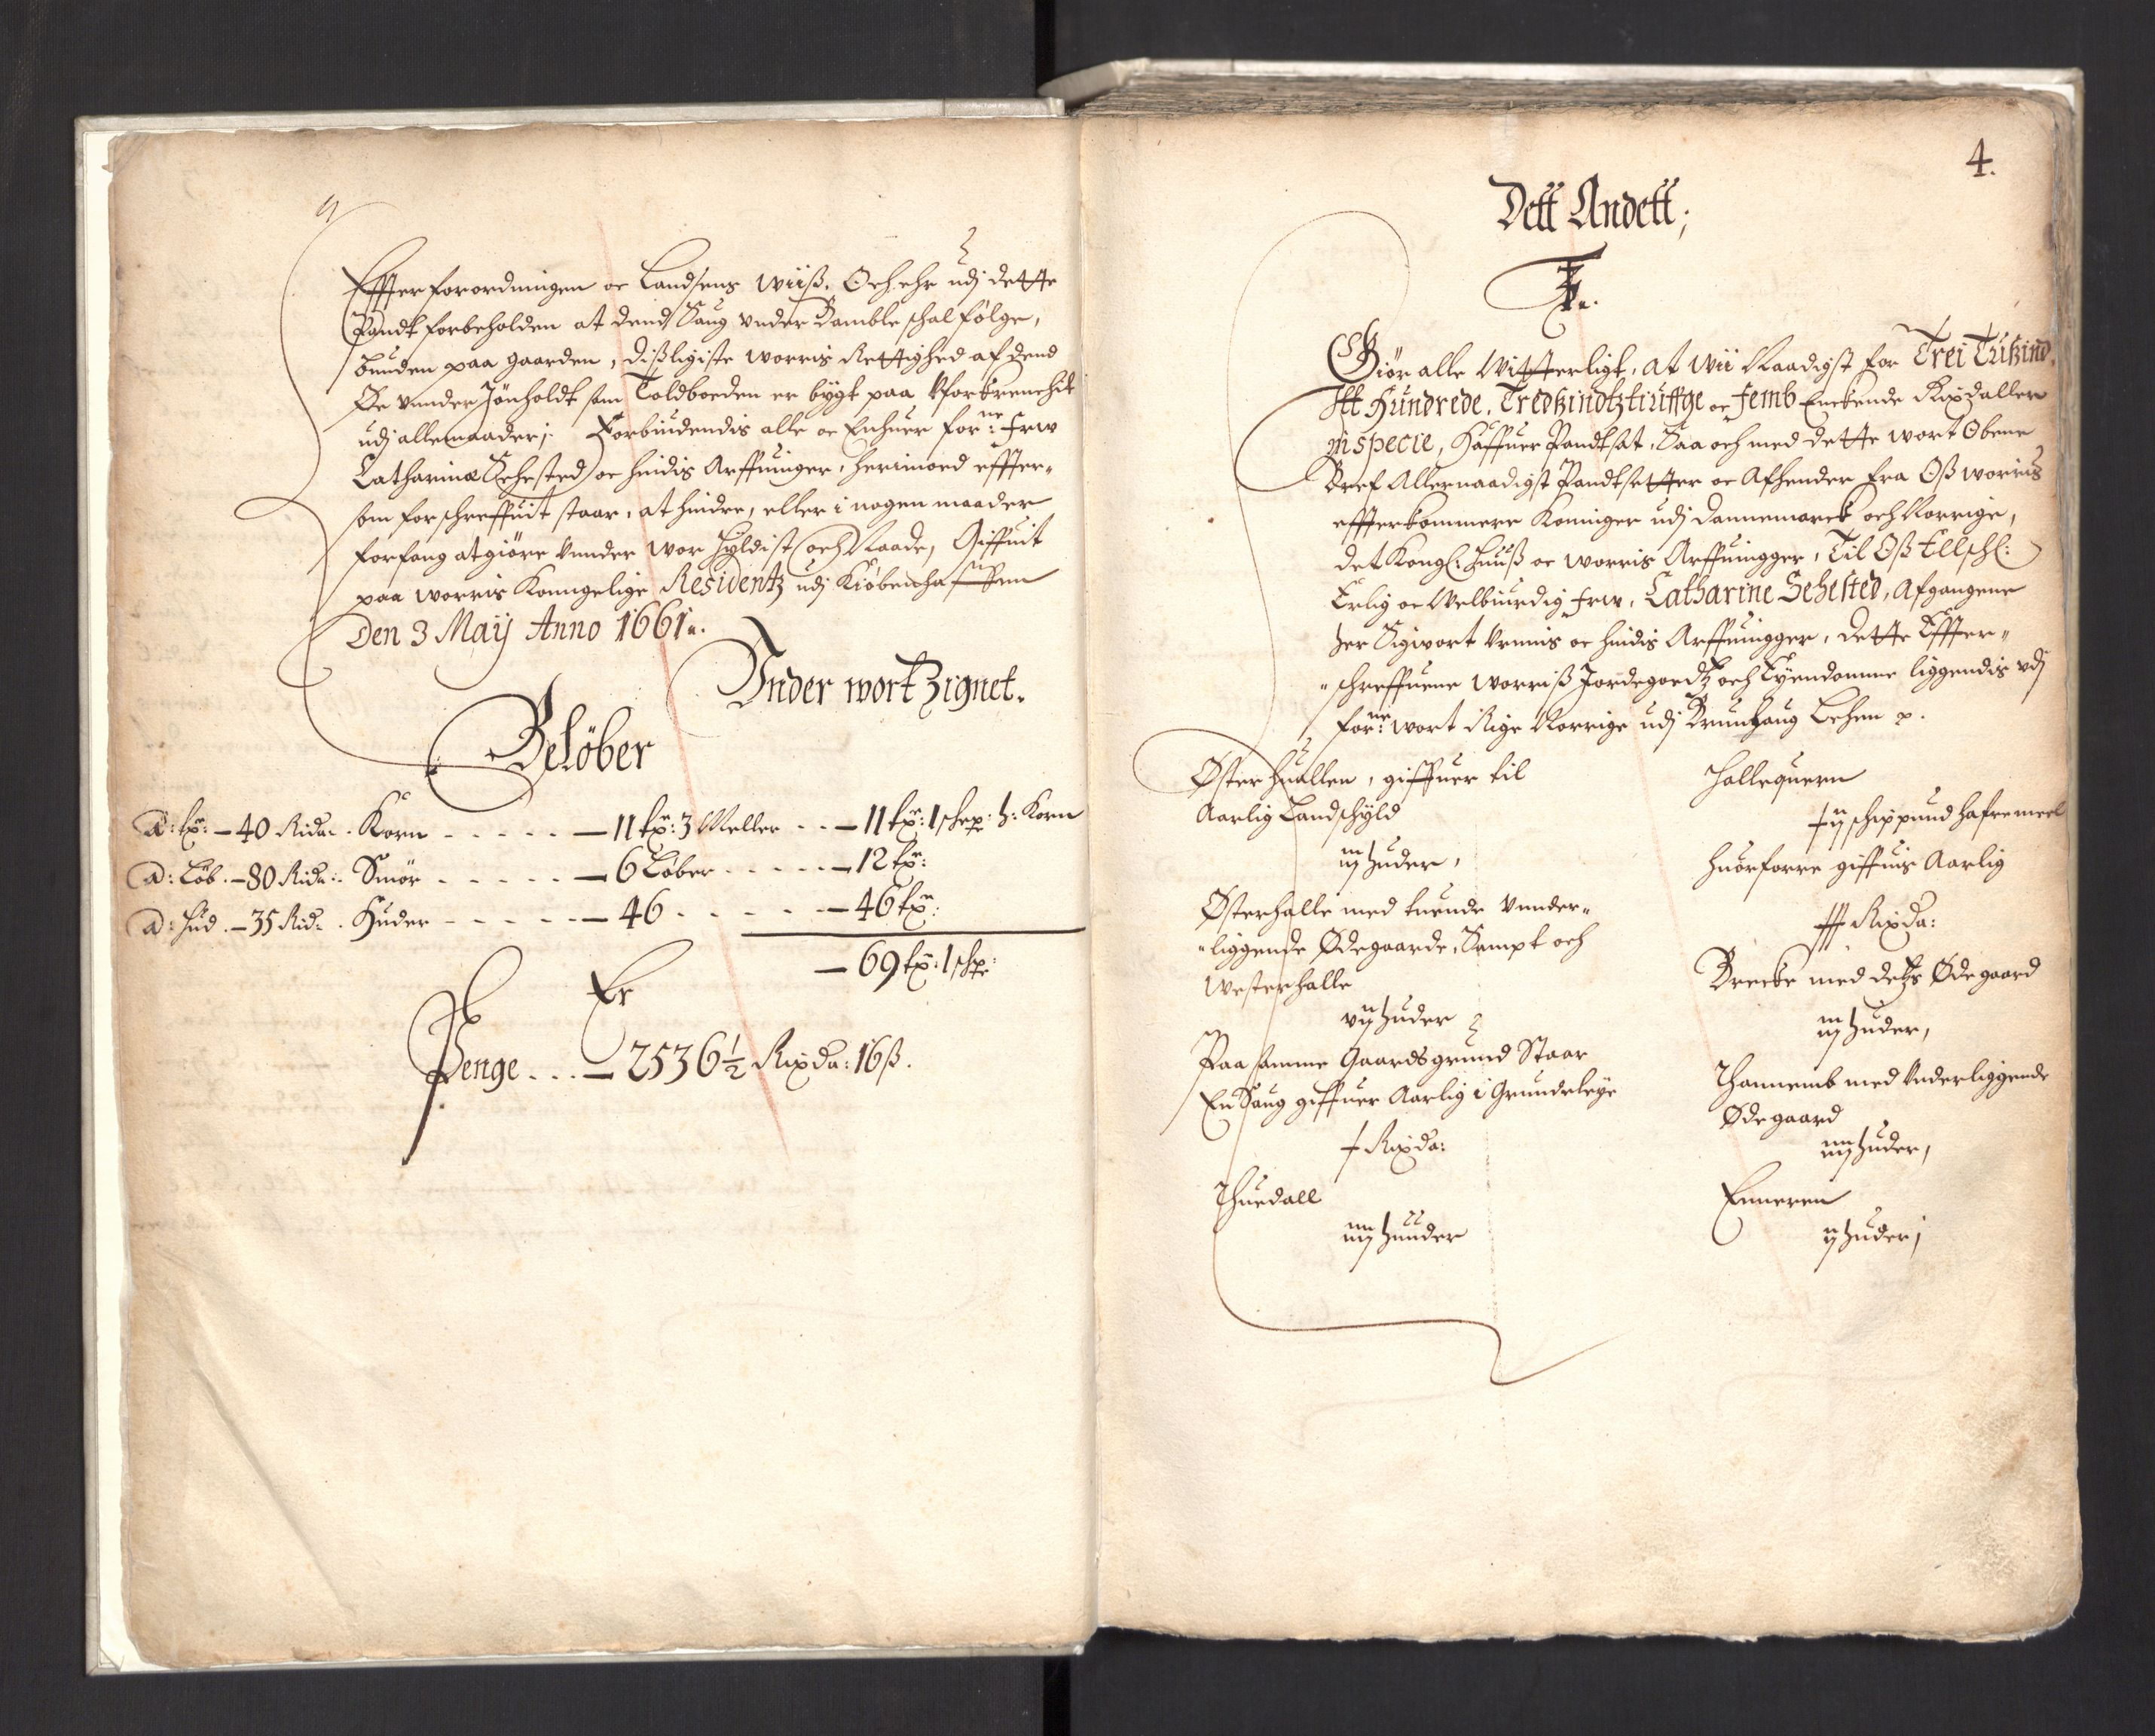 Effter forordningen oc Landsens wiiß. Och ehr udj dette
Pandt forbeholden at dend Saug under Bamble schal følge,
bunden paa gaarden, dißligiste worris Rettighed af dend
Øe under Jönholdt som Toldboeden er bygt paa Vforkrenchit
udj alle maader; Forbiudendis alle oc Enhuer for:ne Frw
Catharinæ Sehested oc hindis Arffuinger, herimod effter-
som forschreffuit staar, at hindre, eller i nogen maader
forfang at giöre under wor Hyldist och Naade, Giffuit
paa worris Konngelige Residentz udj Kiöbenhaffuen
Den 3 Maÿ Anno 1661.
Under wort Zignet.
Belöber
a: tx: - 40 Rida. Korn - - - - - 11 tx: 3 Meller - - - 11 tx: 1 schp: h: Korn
a: Løb. - 80 Rida: Smör - - - - - 6 Løber - - - - - 12 tx:
a: Hud. - 35 Rid: Huder - - - - - 46 - - - - - 46 tx:
- 69 tx: 1 schp:
Er
Penge - - - 2536½ Rixda: 16 ß.
4.
Dett Andett;
F.
Giör alle Witterligt, at wii Naadigst for Trei Tußind
Itt Hundrede, Tredßindtztiuffge oc femb Enckende Rixdaller
in specie, Haffuer Pandtsat, Saa och med dette wort Obene
Bref Allernaadigst Pandtsetter oc Afhender fra Oß worris
effterkommere Koninger udj Dannemarck och Norrige,
det Kongl: Huuß oc worris Arffuingger, Til Oß Ellschl:
Erlig oc Welbiurdig Frw, Catharine Sehested, Afgangene
her Sigwort Urnis oc hindis Arffuingger, dette Effter-
-schreffuene worriß Jordegoedtz och Eyendomme liggendis udj
for:ne wort Rige Norrige udj Brunlaug Lehen p.
Østerhuallen, giffuer til
Aarlig Landschyld
iij huder,
Østerhalle med tuende under-
-liggende Ødegaarde, Sampt och
Westerhalle
vij huder
Paa samme Gaards grund Staar
En Saug giffuer Aarlig i Grundeleye
j Rixda:
Thuedall
iiij huuder
Hallequern
ij schippund hafremeel
huorforre giffuis Aarlig
Rixda:
Brecke med detz Ødegaard
iij huder,
Thannemb med Underliggende
Ødegaard
iiij huder,
Enneren
ij huder;